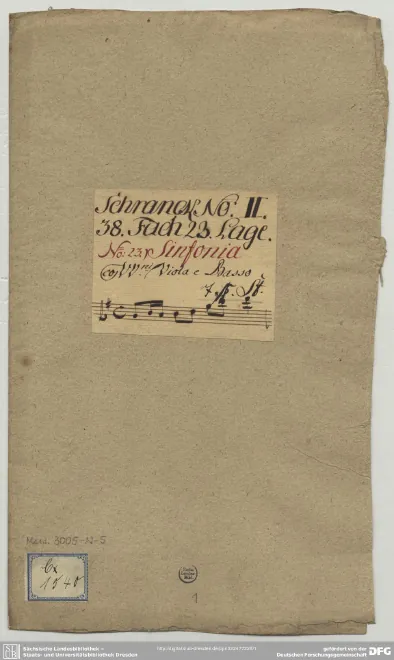 Schranck No: II.
38. Fach 23. Lage.
No: 23.) Sinfonia
co VVni Viola e Basso
7 St.
Mus. 3005-N-5
Cx
1040
1
SLUB
Sächsische Landesbibliothek –
Staats- und Universitätsbibliothek Dresden
gefördert von der
Deutschen Forschungsgemeinschaft
DFG